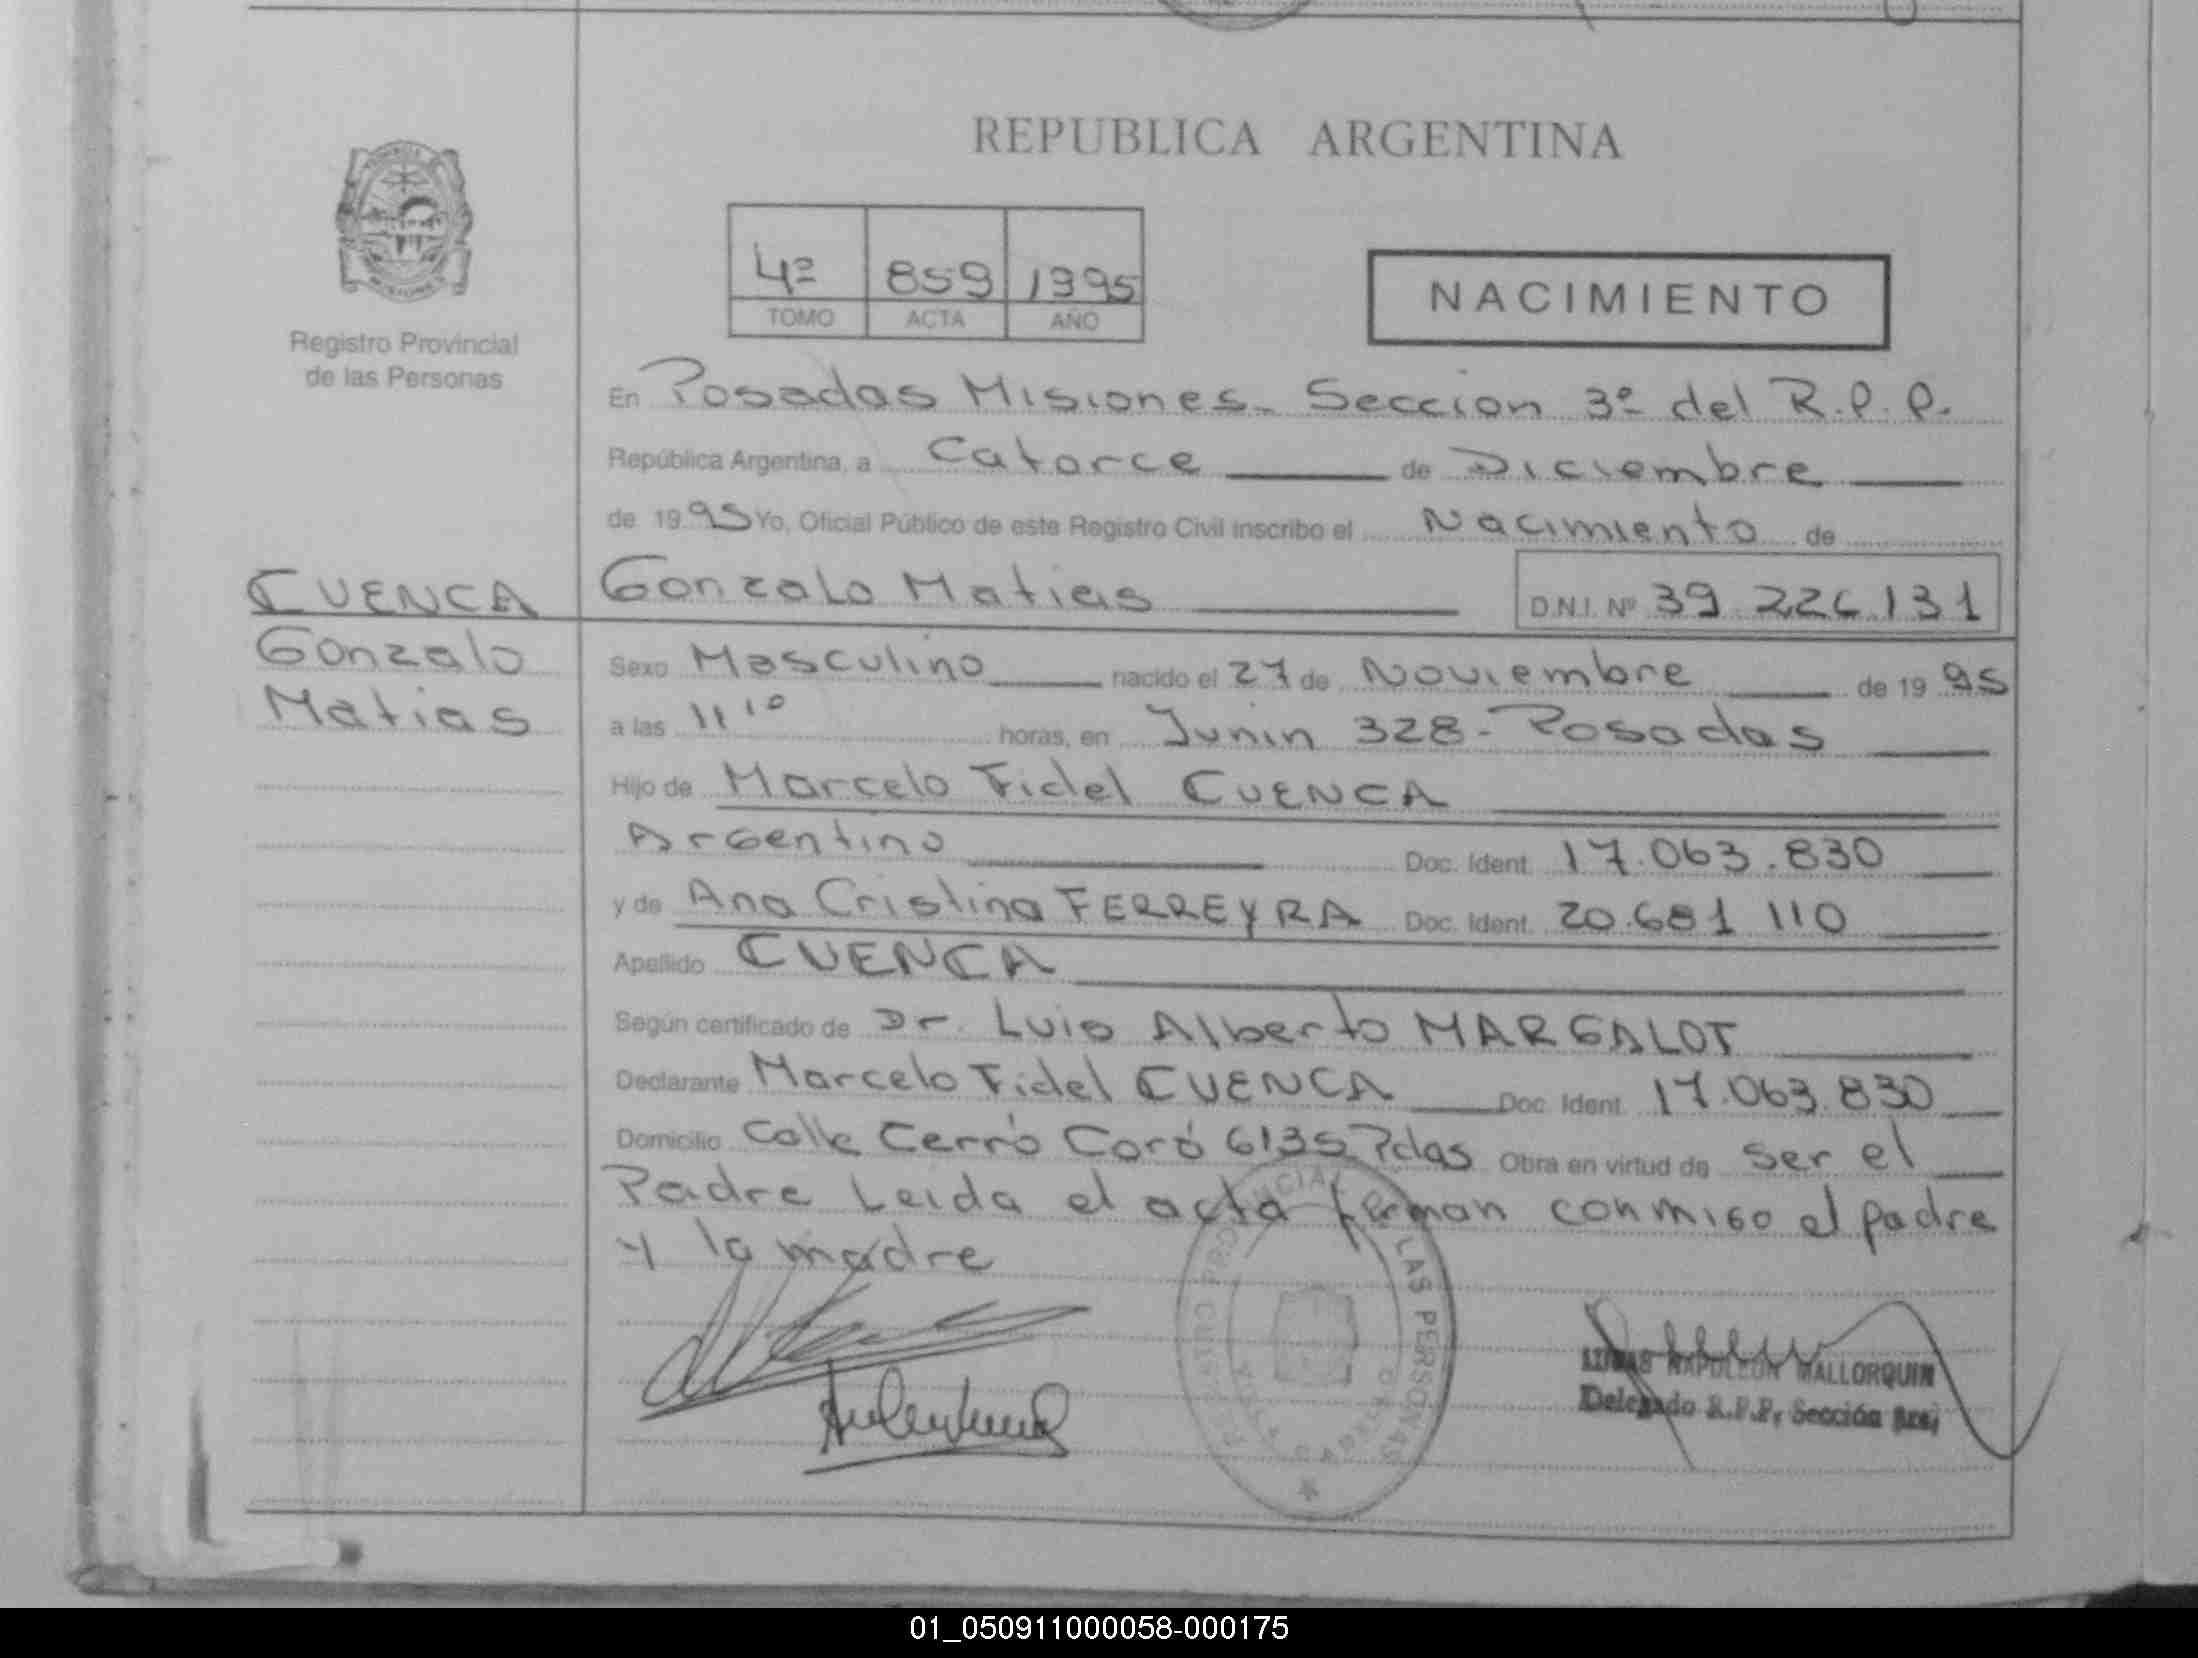 REPUBLICA ARGENTINA
4º 859 1995
TOMO ACTA AÑO
NACIMIENTO
Registro Provincial
de las Personas
En Posadas Misiones. Seccion 3º del R.P.P.
República Argentina, a Catorce de Diciembre
de 1995 Yo, Oficial Público de este Registro Civil inscribo el Nacimiento de
CUENCA
Gonzalo
Matias
Gonzalo Matias D.N.I. Nº 39.226.131
Sexo Masculino nacido el 27 de Noviembre de 1995
a las 11 10 horas, en Junin 328-Posadas
Hijo de Marcelo Fidel CUENCA
Argentino Doc. Ident. 17.063.830
y de Ana Cristina FERREYRA Doc. Ident. 20.681 110
Apellido CUENCA
Según certificado de Dr. Luis Alberto MARGALOT
Declarante Marcelo Fidel CUENCA Doc. Ident. 17.063.830
Domicilio Calle Cerró Coró 6135 Pdas Obra en virtud de ser el
Padre Leida el acta firman conmigo el padre
y la madre
LAS PERSONAS
NAPOLEON MALLORQUIN
Delegado R.P.P. Sección
01_050911000058-000175